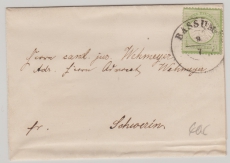 BASSUM
Herrn cand. jur. Wehmeyer.
Adr. Herrn Advocat Wehmeyer
fr. Schwerin.